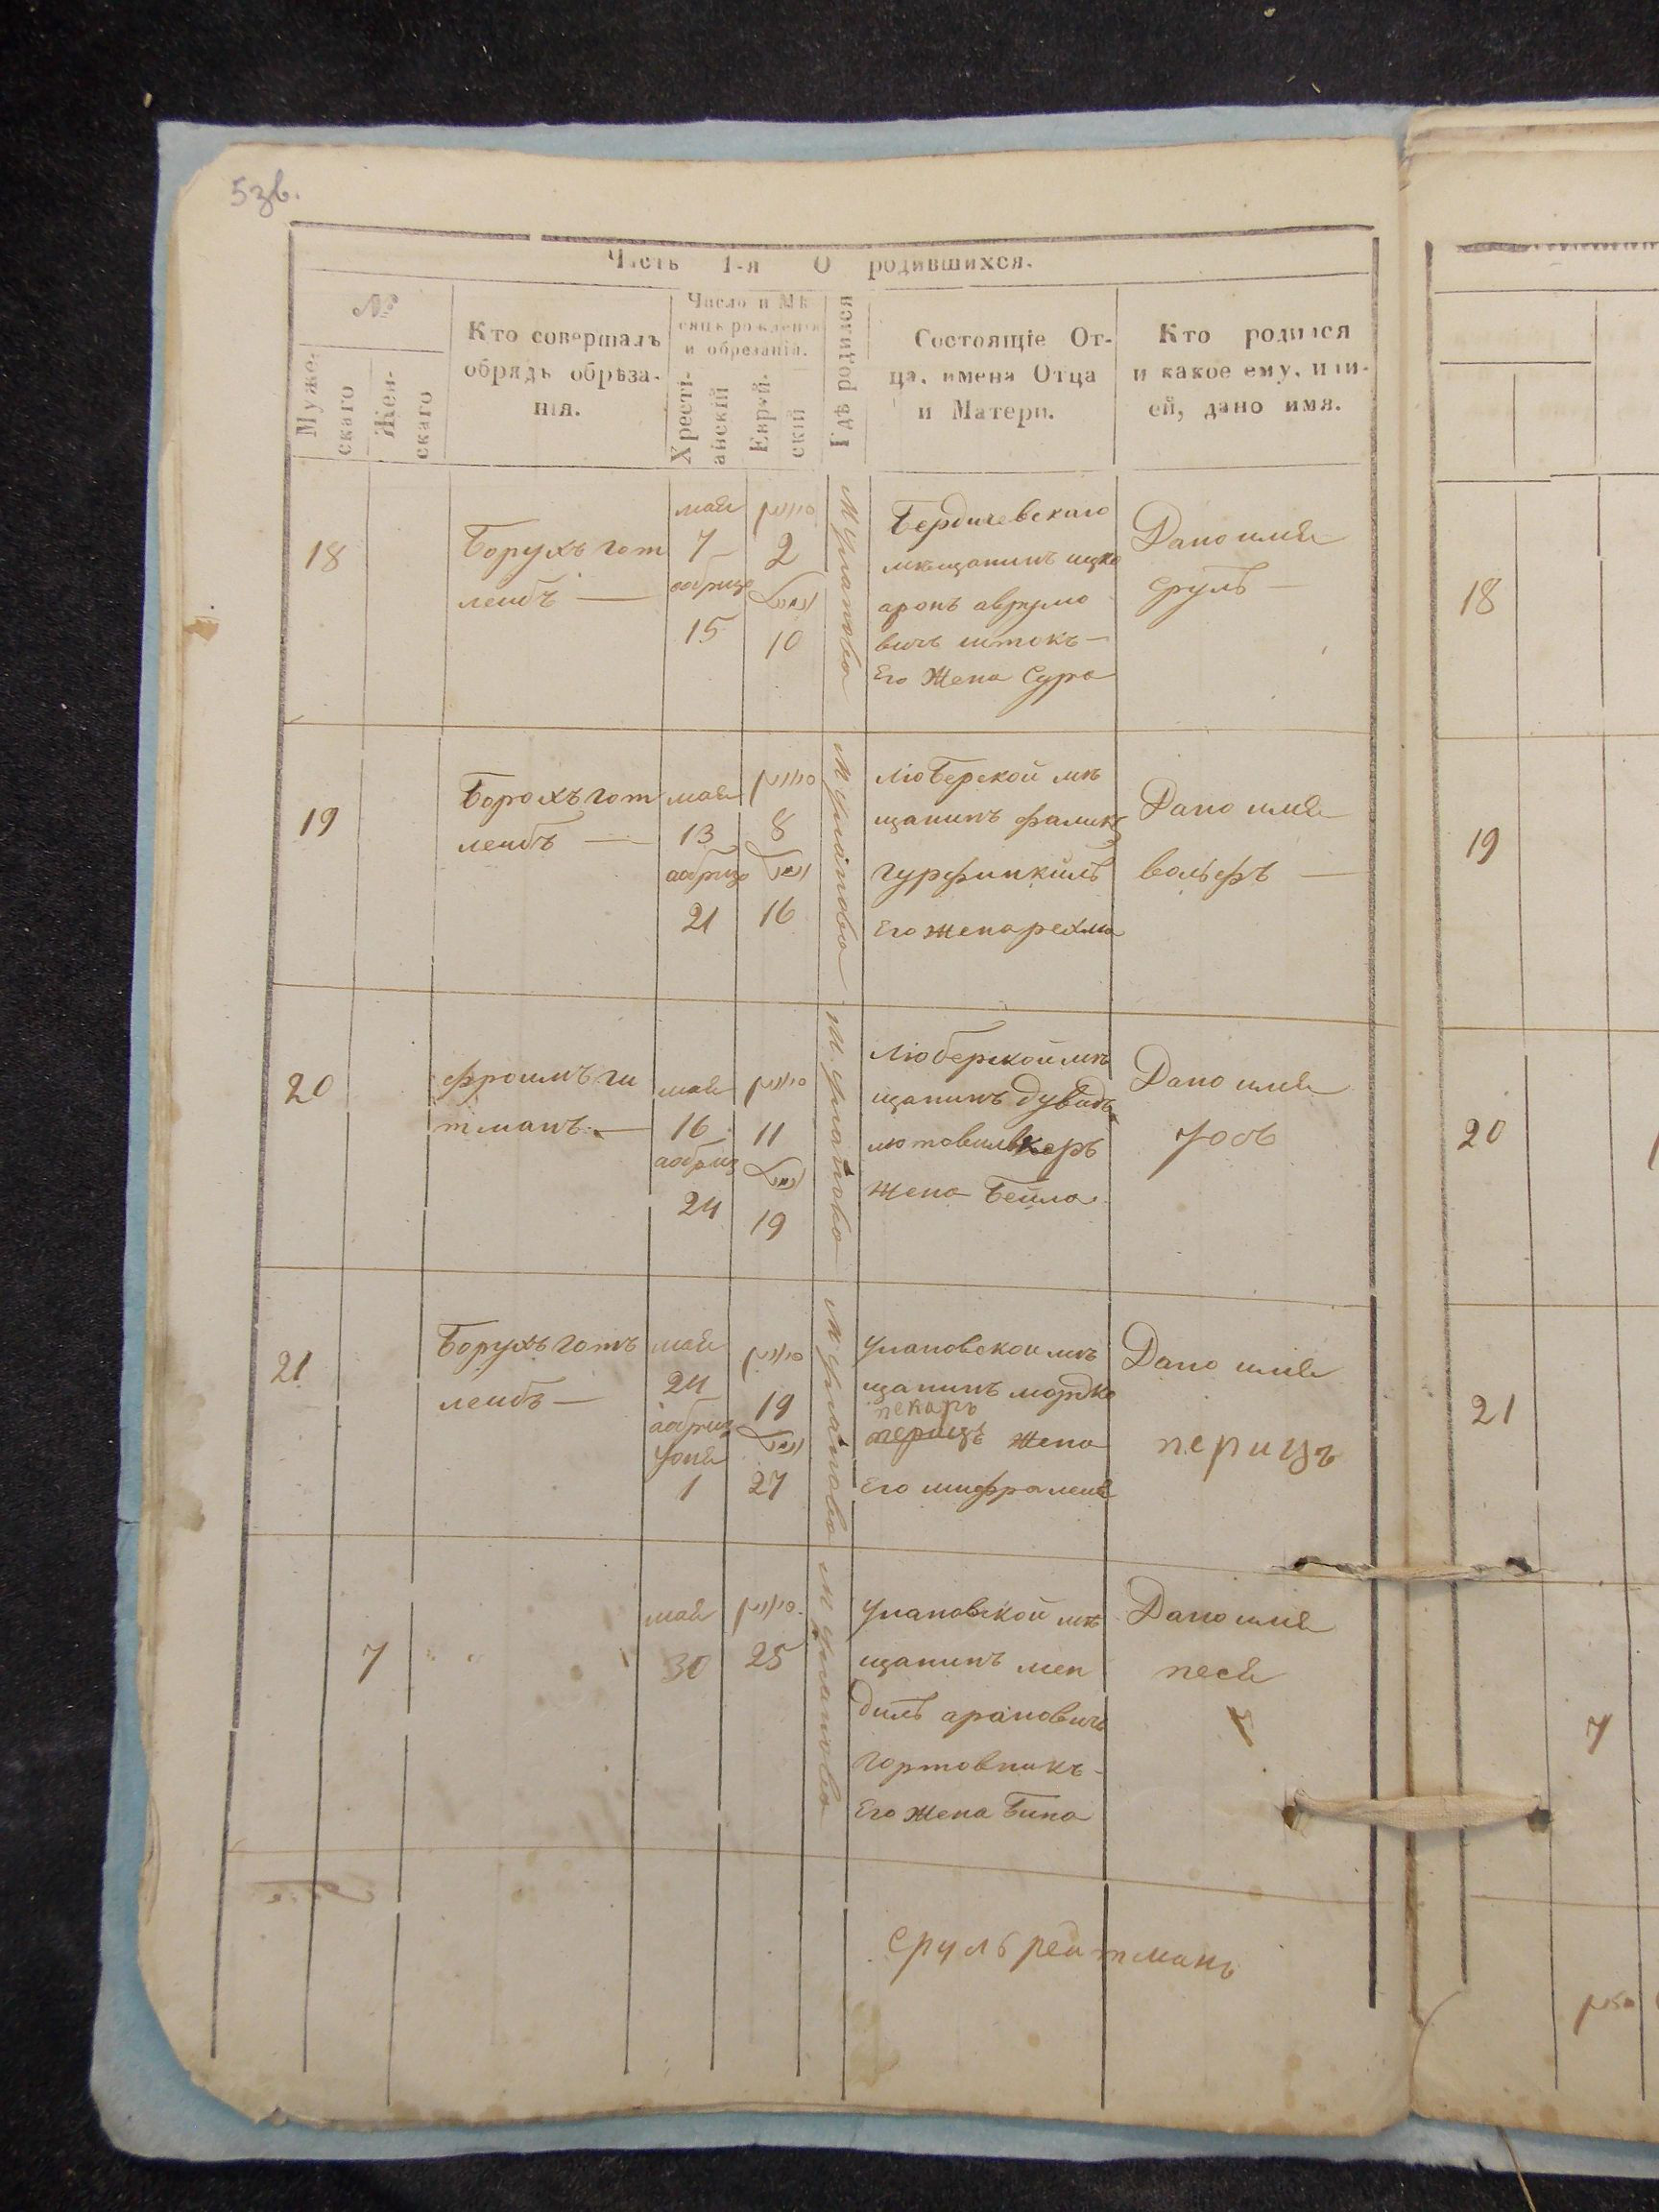 5зв.
Часть 1-я О родившихся.
№
Мужескаго
Женскаго
Кто совершалъ
обрядъ обрѣза-
нія.
Число и Мѣ
сяцъ рожденія
и обрезанія.
Хресті-
анскій
Еврей-
скій
Гдѣ родился
Состоящіе От-
ца, имена Отца
и Матери.
Кто родился
и какое ему, или
ей, дано имя.
18
Борухъ гот
лейбъ —
май
7
обриза
15
סיון
2
10
М Уланово
Бердичевскаго
мѣщанинъ ицко
аронъ аврумо
вичъ штокъ —
Его Жена Сура
Дано имя
сруль —
18
19
Борохъ гот
лейбъ —
май
13
аобриз
21
סיון
8
16
М Уланово
люберской мѣ
щанинъ фалик
гурфинкиль
Его жена рехла
Дано имя
вольфъ —
19
20
фроимъ ги
тманъ —
май
16
аобриз
24
סיון
11
19
М. Уланово
Люберской мѣ
щанинъ дувидъ
жена Бейла
Дано имя
20
21
Борухъ готъ
лейбъ —
май
24
аобриз
Юня
1
סיון
19
27
М Уланово
Улановской мѣ
щанинъ мордко
пекарь
перицъ жена
Его шифра лея
Дано имя
перицъ
21
7
май
30
סיון
25
М Уланово
Улановской мѣ
щанинъ мен
диль арановичъ
гортовникъ -
Его жена Бина
Дано имя
песя
7
сруль рейтманъ